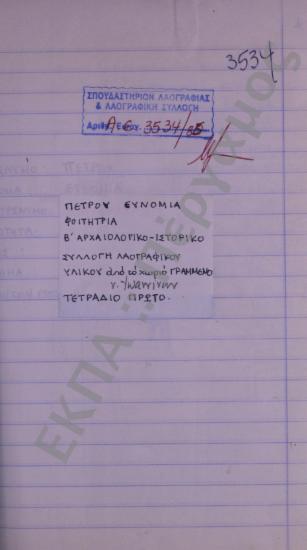 3534
ΣΠΟΥΔΑΣΤΗΡΙΟΝ ΛΑΟΓΡΑΦΙΑΣ
& ΛΑΟΓΡΑΦΙΚΗ ΣΥΛΛΟΓΗ
Αριθμ. Εισαγ. Α.Ε. 3534/85
ΠΕΤΡΟΥ ΕΥΝΟΜΙΑ
ΦΟΙΤΗΤΡΙΑ
Β' ΑΡΧΑΙΟΛΟΓΙΚΟ-ΙΣΤΟΡΙΚΟ
ΣΥΛΛΟΓΗ ΛΑΟΓΡΑΦΙΚΟΥ
ΥΛΙΚΟΥ από το χωριό ΓΡΑΜΜΕΝΟ
ν. Ιωαννίνων
ΤΕΤΡΑΔΙΟ ΠΡΩΤΟ.
ΕΚΠΑ :: Πέργαμος